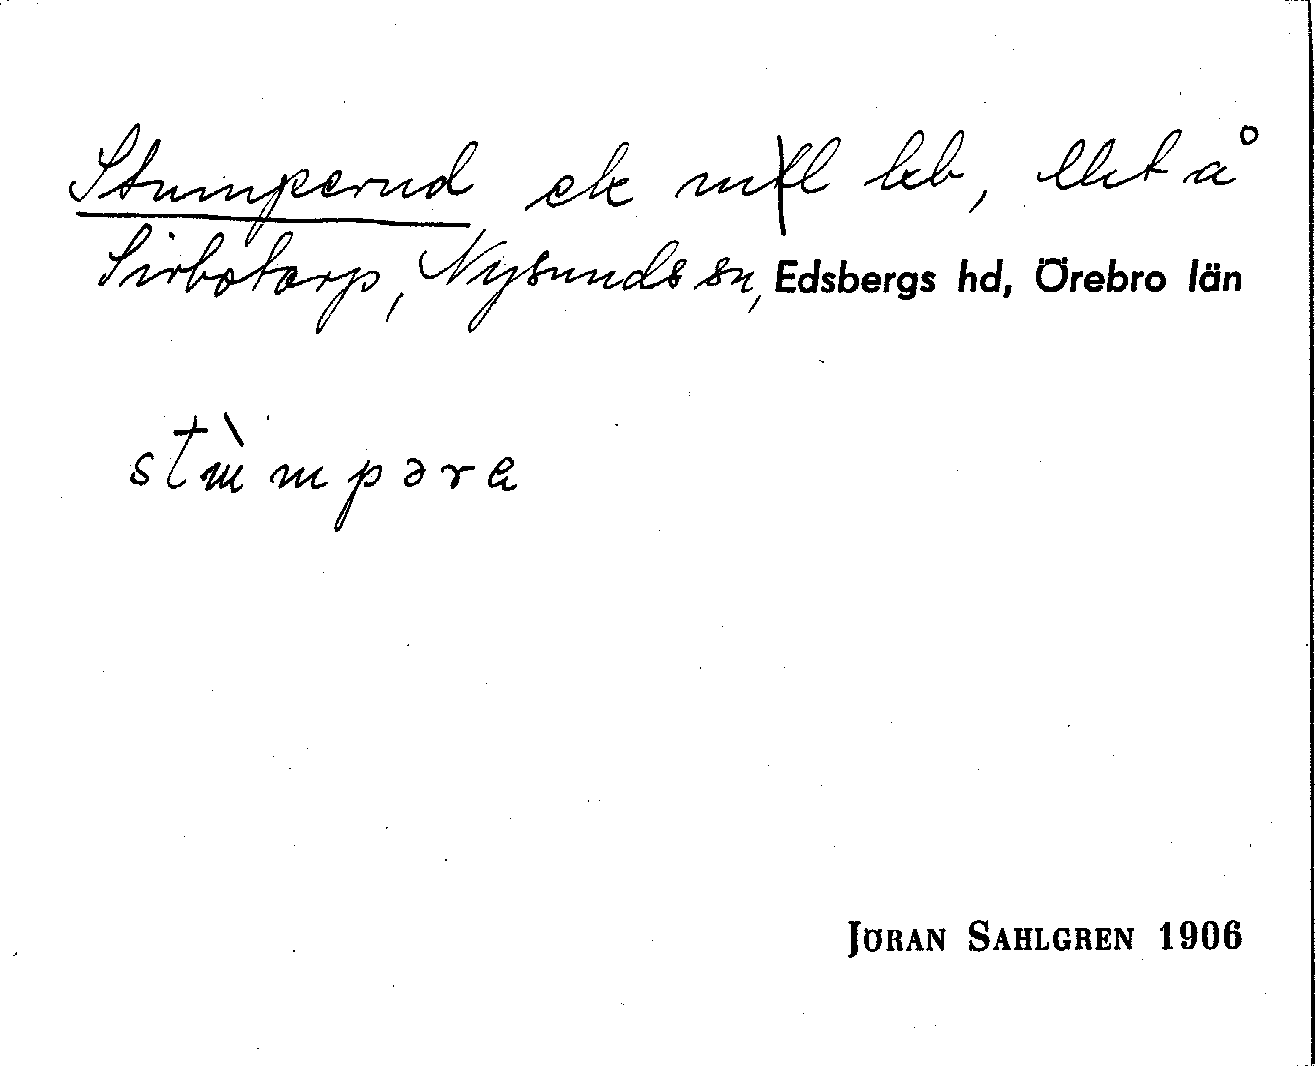 Stumperud ek m fl leb, Ekt å
Sirbotorp, Nysunds sn, Edsbergs hd, Örebro län
stɯ̀mpəra
JÖRAN SAHLGREN 1906